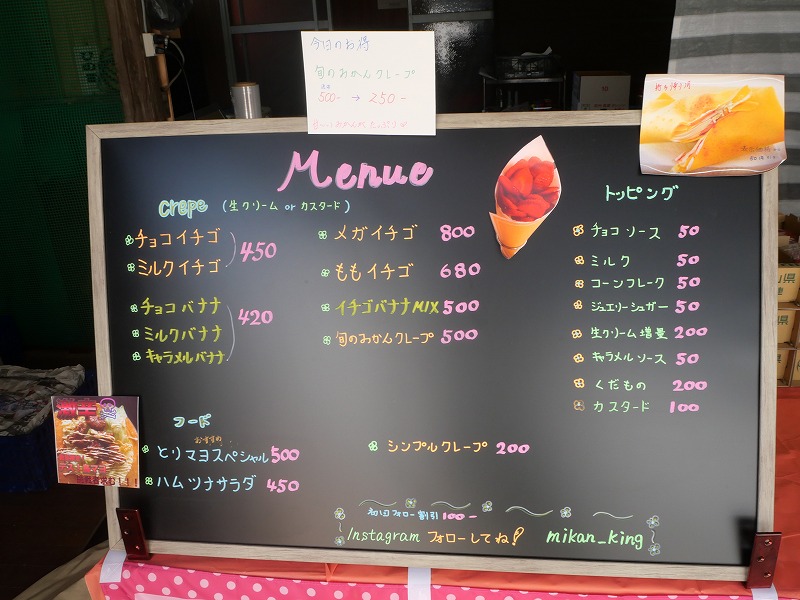 今日のお得
旬のみかんクレープ
500- → 250-
Menue
Crepe (生クリーム or カスタード)
チョコイチゴ
ミルクイチゴ
450
チョコバナナ
ミルクバナナ
キャラメルバナナ
420
メガイチゴ 800
ももイチゴ 680
イチゴバナナMIX 500
旬のみかんクレープ 500
トッピング
チョコソース 50
ミルク 50
コーンフレーク 50
ジュエリーシュガー 50
生クリーム増量 200
キャラメルソース 50
くだもの 200
カスタード 100
フード
おすすめ
とりマヨスペシャル 500
ハムツナサラダ 450
シンプルクレープ 200
初回フォロー割引 100-
Instagram フォローしてね! mikan_king